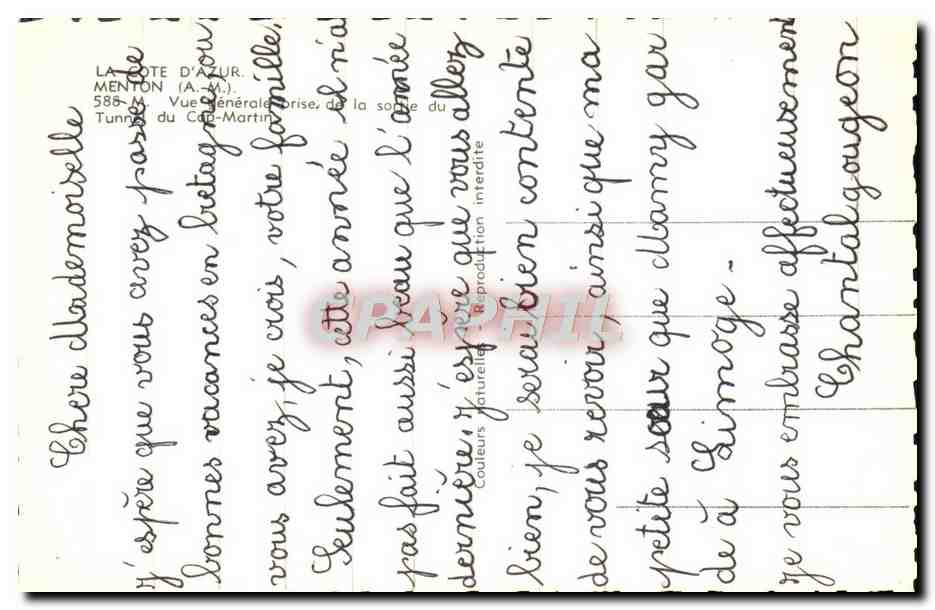 LA COTE D'AZUR.
MENTON (A.-M.).
588-M. Vue Générale prise, de la sortie du
Tunnel du Cap-Martin
Couleurs naturelles - Reproduction interdite
CPAPHIL
Chere Mademoiselle
J'espère que vous avez passé de
bonnes vacances en bretagne, ou
vous avez, je crois, votre famille.
Seulement, cette année il n'a
pas fait aussi beau que l'année
dernière. J'éspere que vous allez
bien, je serais bien contente
de vous revoir, ainsi que ma
petite sœur que Mamy gar
de à Limoge -
Je vous embrasse affectueusement
Chantal gougeon